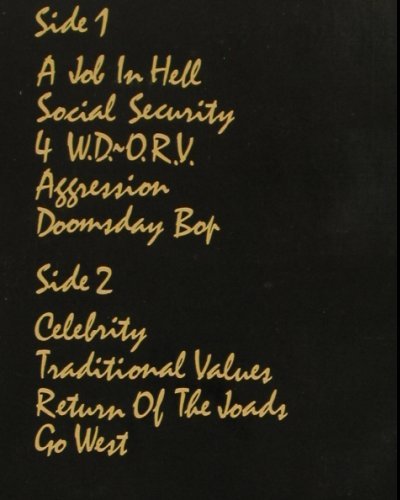 Side 1
A Job In Hell
Social Security
4 W.D.~O.R.V.
Aggression
Doomsday Bop
Side 2
Celebrity
Traditional Values
Return Of The Joads
Go West